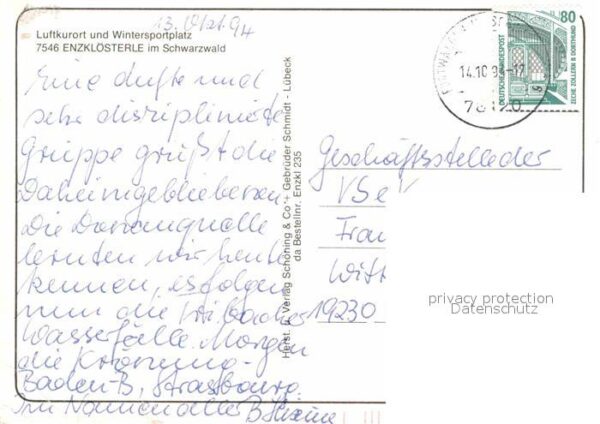 13. Okt. 94
Luftkurort und Wintersportplatz
7546 ENZKLÖSTERLE im Schwarzwald
Eine dufte und
sehr disziplinierte
Gruppe grüßt die
Daheimgebliebenen
Die Donauquelle
lernten wir heute
kennen, es folgen
nun die
Wasserfälle. Morgen
die Krönung -
Baden-B, Strasbourg.
Im Namen alle B
Herst. u. Verlag Schöning & Co + Gebrüder Schmidt - Lübeck
da Bestellnr. Enzkl 235
80
DEUTSCHE BUNDESPOST
ZECHE ZOLLERN II DORTMUND
14.10
-17
78120
Geschäftsstelle der
VSeV
Frau
Witt
19230
privacy protection
Datenschutz